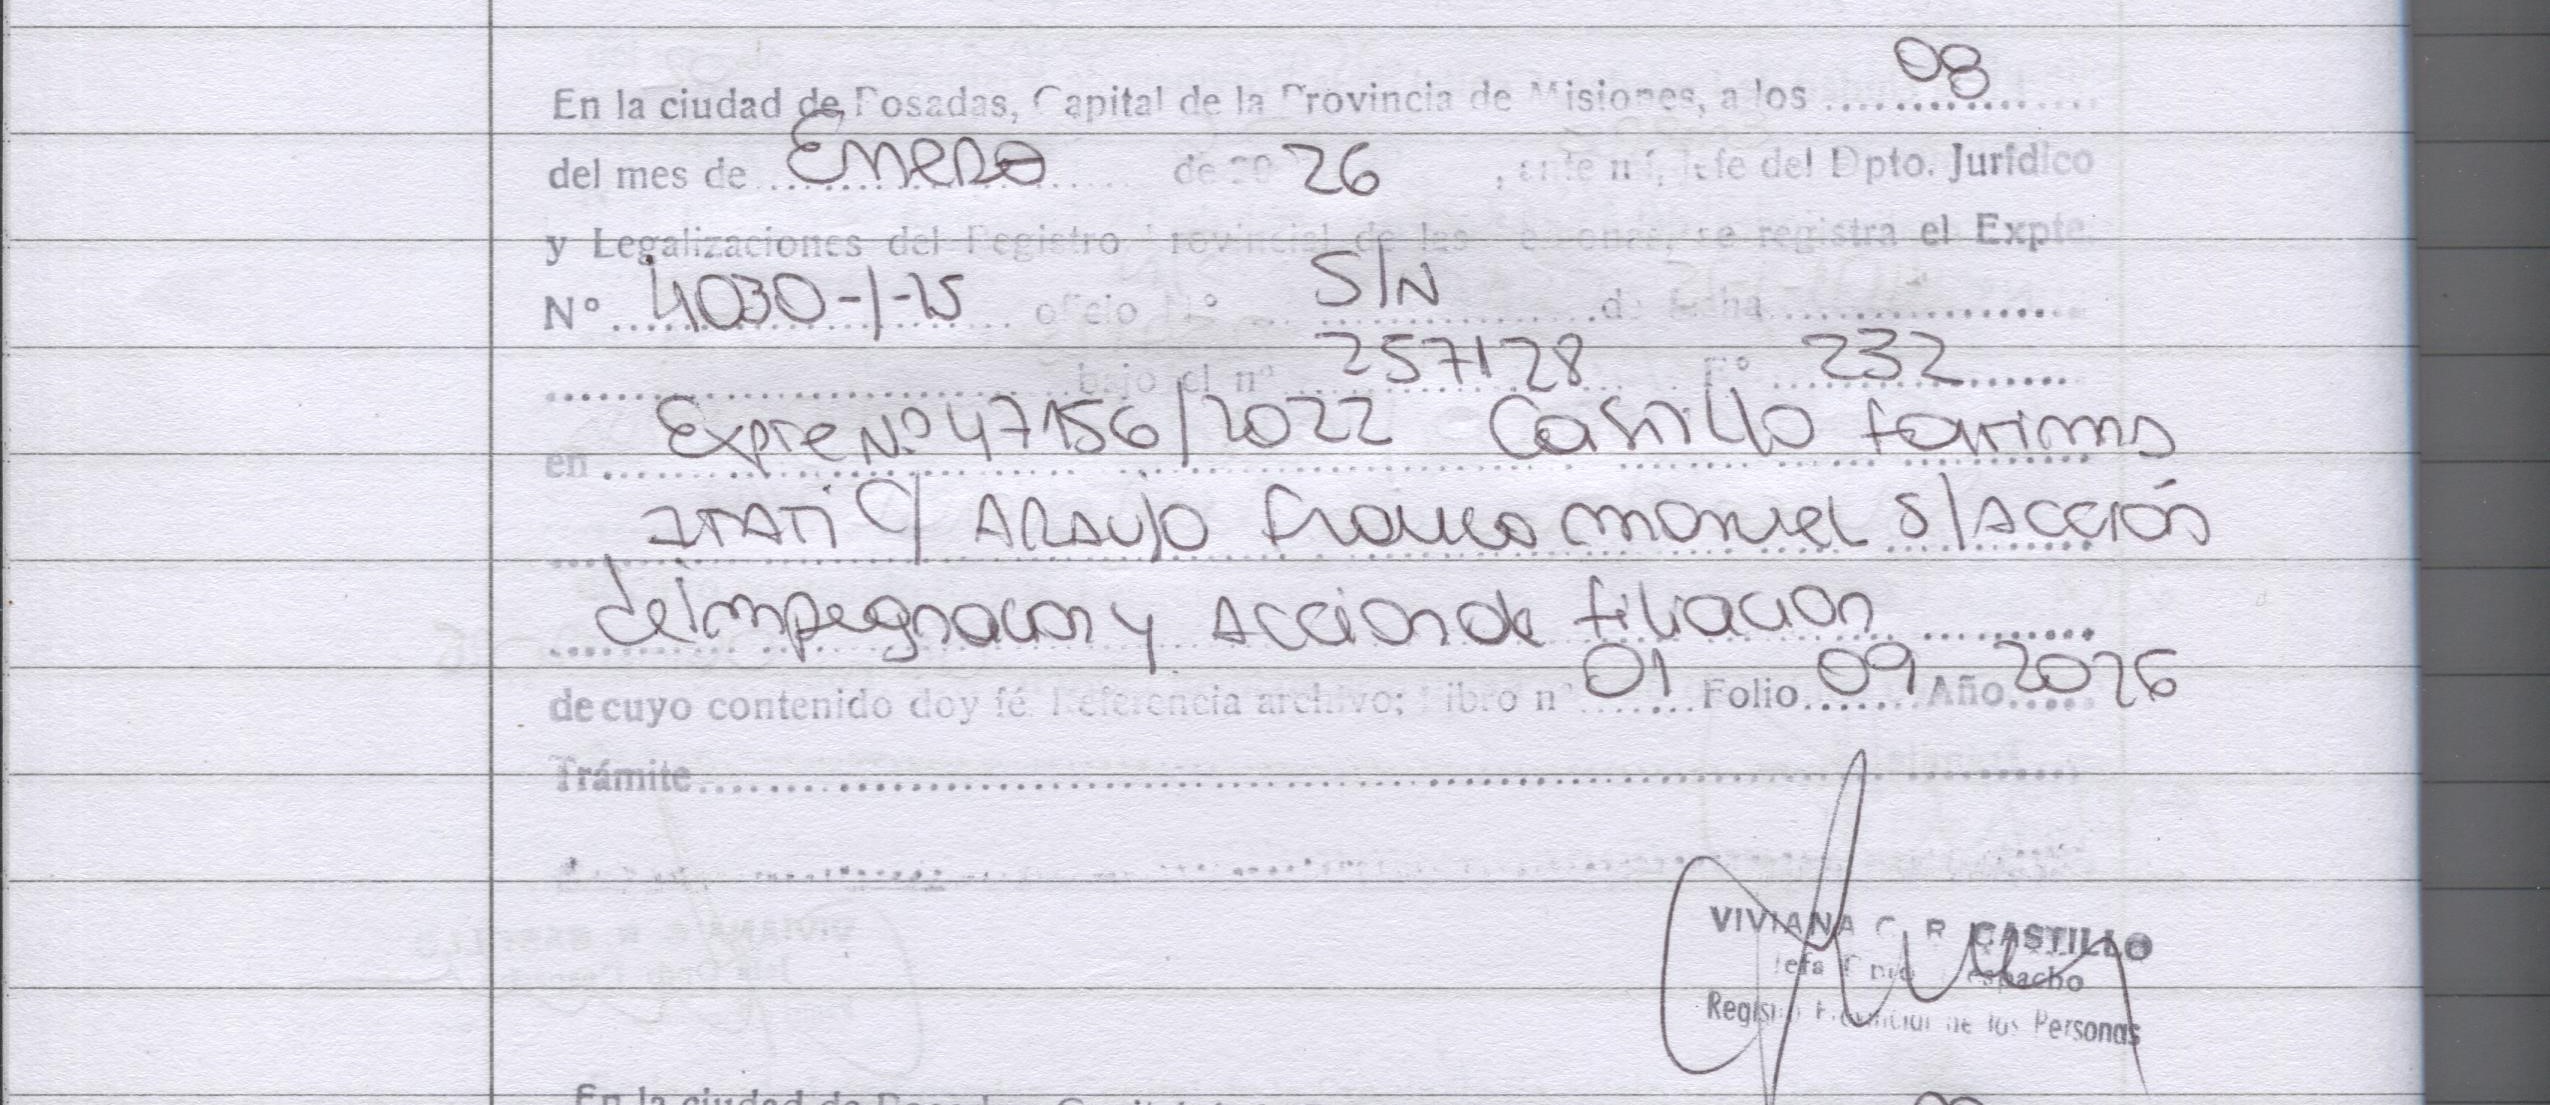 En la ciudad de Posadas, Capital de la Provincia de Misiones, a los 08
del mes de Enero de 20 26, ante mí, Jefe del Dpto. Jurídico
y Legalizaciones del Registro Provincial de las Personas, se registra el Expte.
Nº 4030-1-25 oficio Nº S/N de fecha
bajo el nº 257128 Fº 232
en Expte Nº 47156/2022 Castillo
ITATI C/ ARAUJO Franco Manuel S/ Acción
de Impegnacion y Accion de filiacion
de cuyo contenido doy fé Referencia archivo; Libro nº 01 Folio 09 Año 2026
Trámite
VIVIANA C. R. CASTILLO
Jefa Dpto Despacho
Registro Provincial de las Personas
En la ciudad de Posadas, Capital